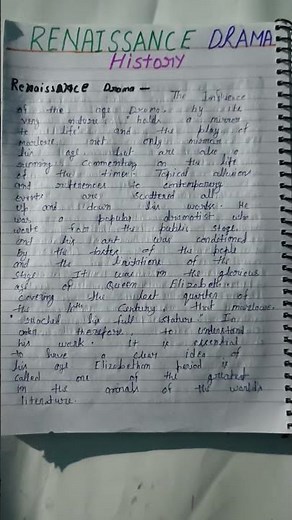 RENAISSANCE DRAMA
History
Renaissance Drama —
The Influence
of the age Drama by its
very nature holds a mirror
to life and the play of
marlowe not only mirror
his age but are also a
running commentary on the life
of the times Topical allusion
and references to contemporary
events are scattered all
up and down his works. He
was a popular dramatist who
wrote from the public stage
and his art was conditioned
by the tastes of the people
and the limitations of the
stage. It was in the glorious
age of Queen Elizabeth
covering the last quarter of
the 16th Century, that marlowe
attached his full stature. In
order therefore to understand
his work. It is essential
to have a clear idea of
his age Elizabethan period is
called one of the greatest
in the annals of the worlds
literature.